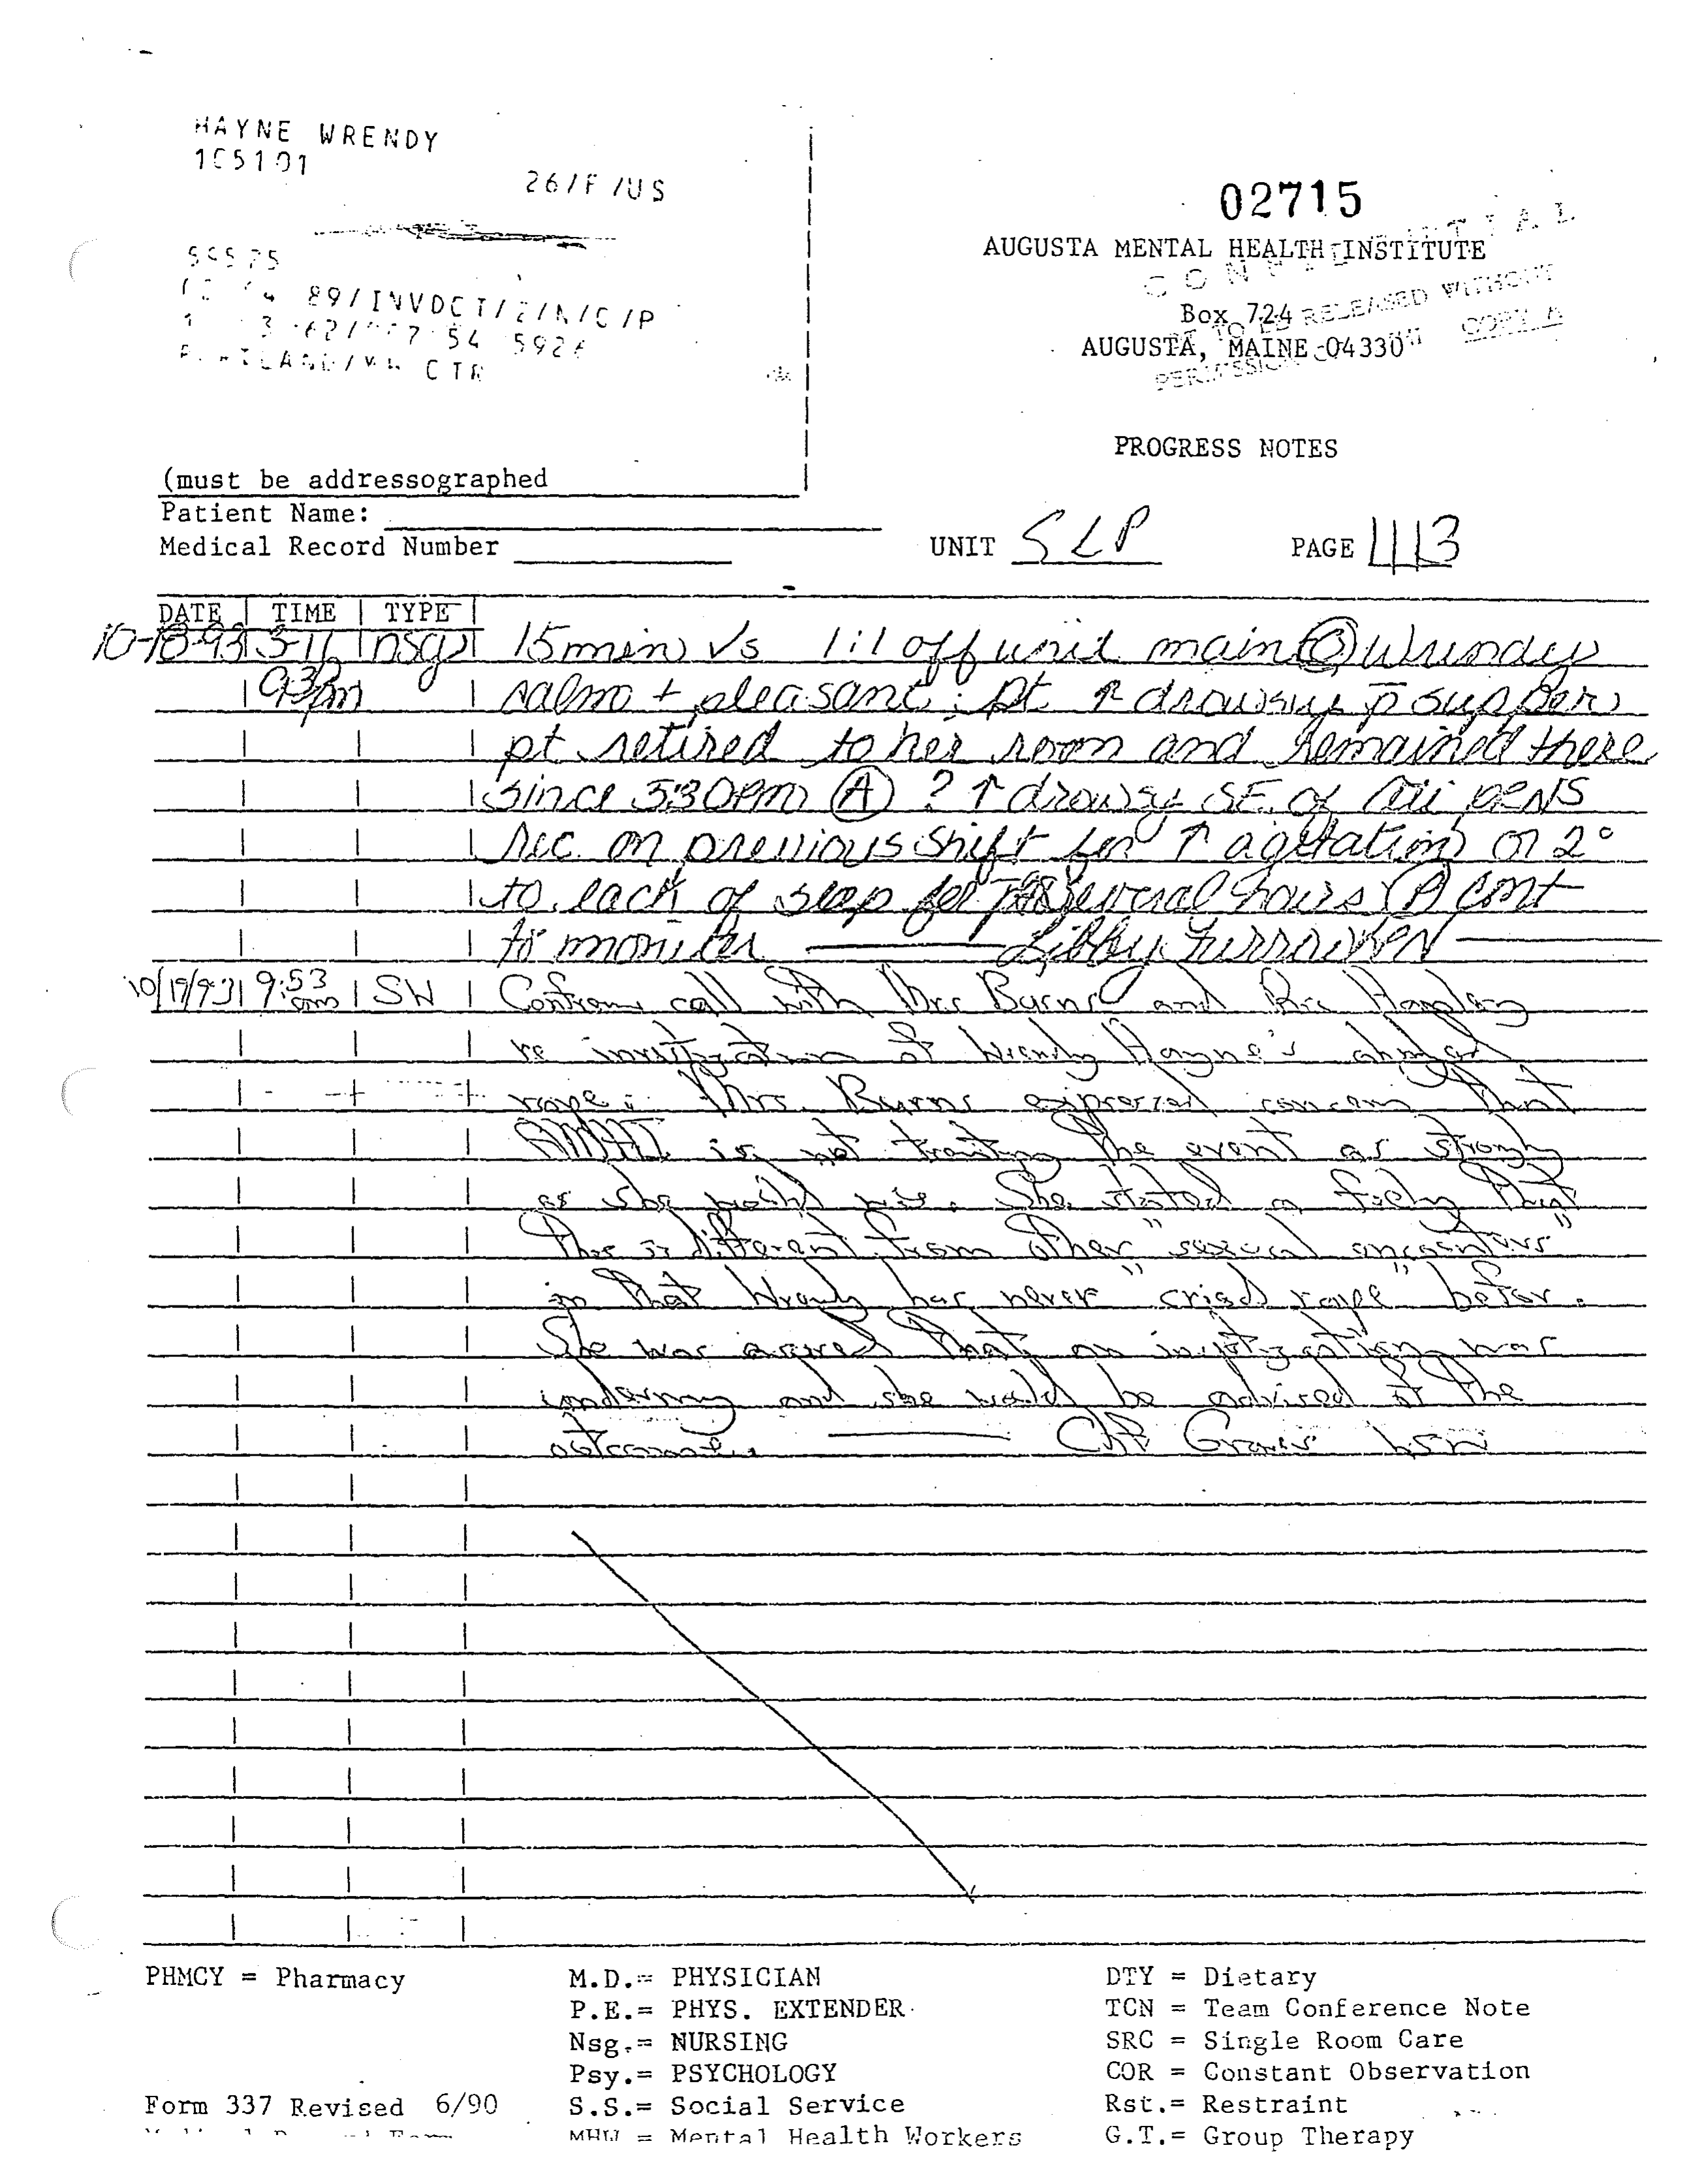 HAYNE WRENDY
105101
26/F/US
02715
CONFIDENTIAL
AUGUSTA MENTAL HEALTH INSTITUTE
Box 724
RELEASED WITHOUT
AUGUSTA, MAINE 04330
PERMISSION
COPY
89/INVOCT/2/N/C/P
54 5926
CTR
PROGRESS NOTES
(must be addressographed
Patient Name:
Medical Record Number
UNIT SLP PAGE 1113
DATE | TIME | TYPE
10-18-93 3-11 nsg 15min √s 1:1 off unit maint Wrendy
93 pm calm + pleasant; pt ↑ drowsy p̄ supper
pt retired to her room and remained there
since 5:30pm (A) ? ↑ drowsy SE of PRNS
rec. on previous shift for ↑ agitation or 2°
to lack of sleep for several hours (P) cont
to monitor Libby
10/19/93 9:53 am SW call with Mrs Burns and
re investigation of Wrendy Hayne's alleged
rape. Mrs. Burns expressed concern that
AMHI is not treating the event as strongly
as she would. She stated a feeling that
this is different from other "sexual encounters"
in that Wrendy has never "cried rape" before.
She was assured that an investigation was
underway and she would be advised of the
outcome. Graves LSW
PHMCY = Pharmacy
M.D.= PHYSICIAN
P.E.= PHYS. EXTENDER
Nsg.= NURSING
Psy.= PSYCHOLOGY
S.S.= Social Service
MHW = Mental Health Workers
DTY = Dietary
TCN = Team Conference Note
SRC = Single Room Care
COR = Constant Observation
Rst.= Restraint
G.T.= Group Therapy
Form 337 Revised 6/90